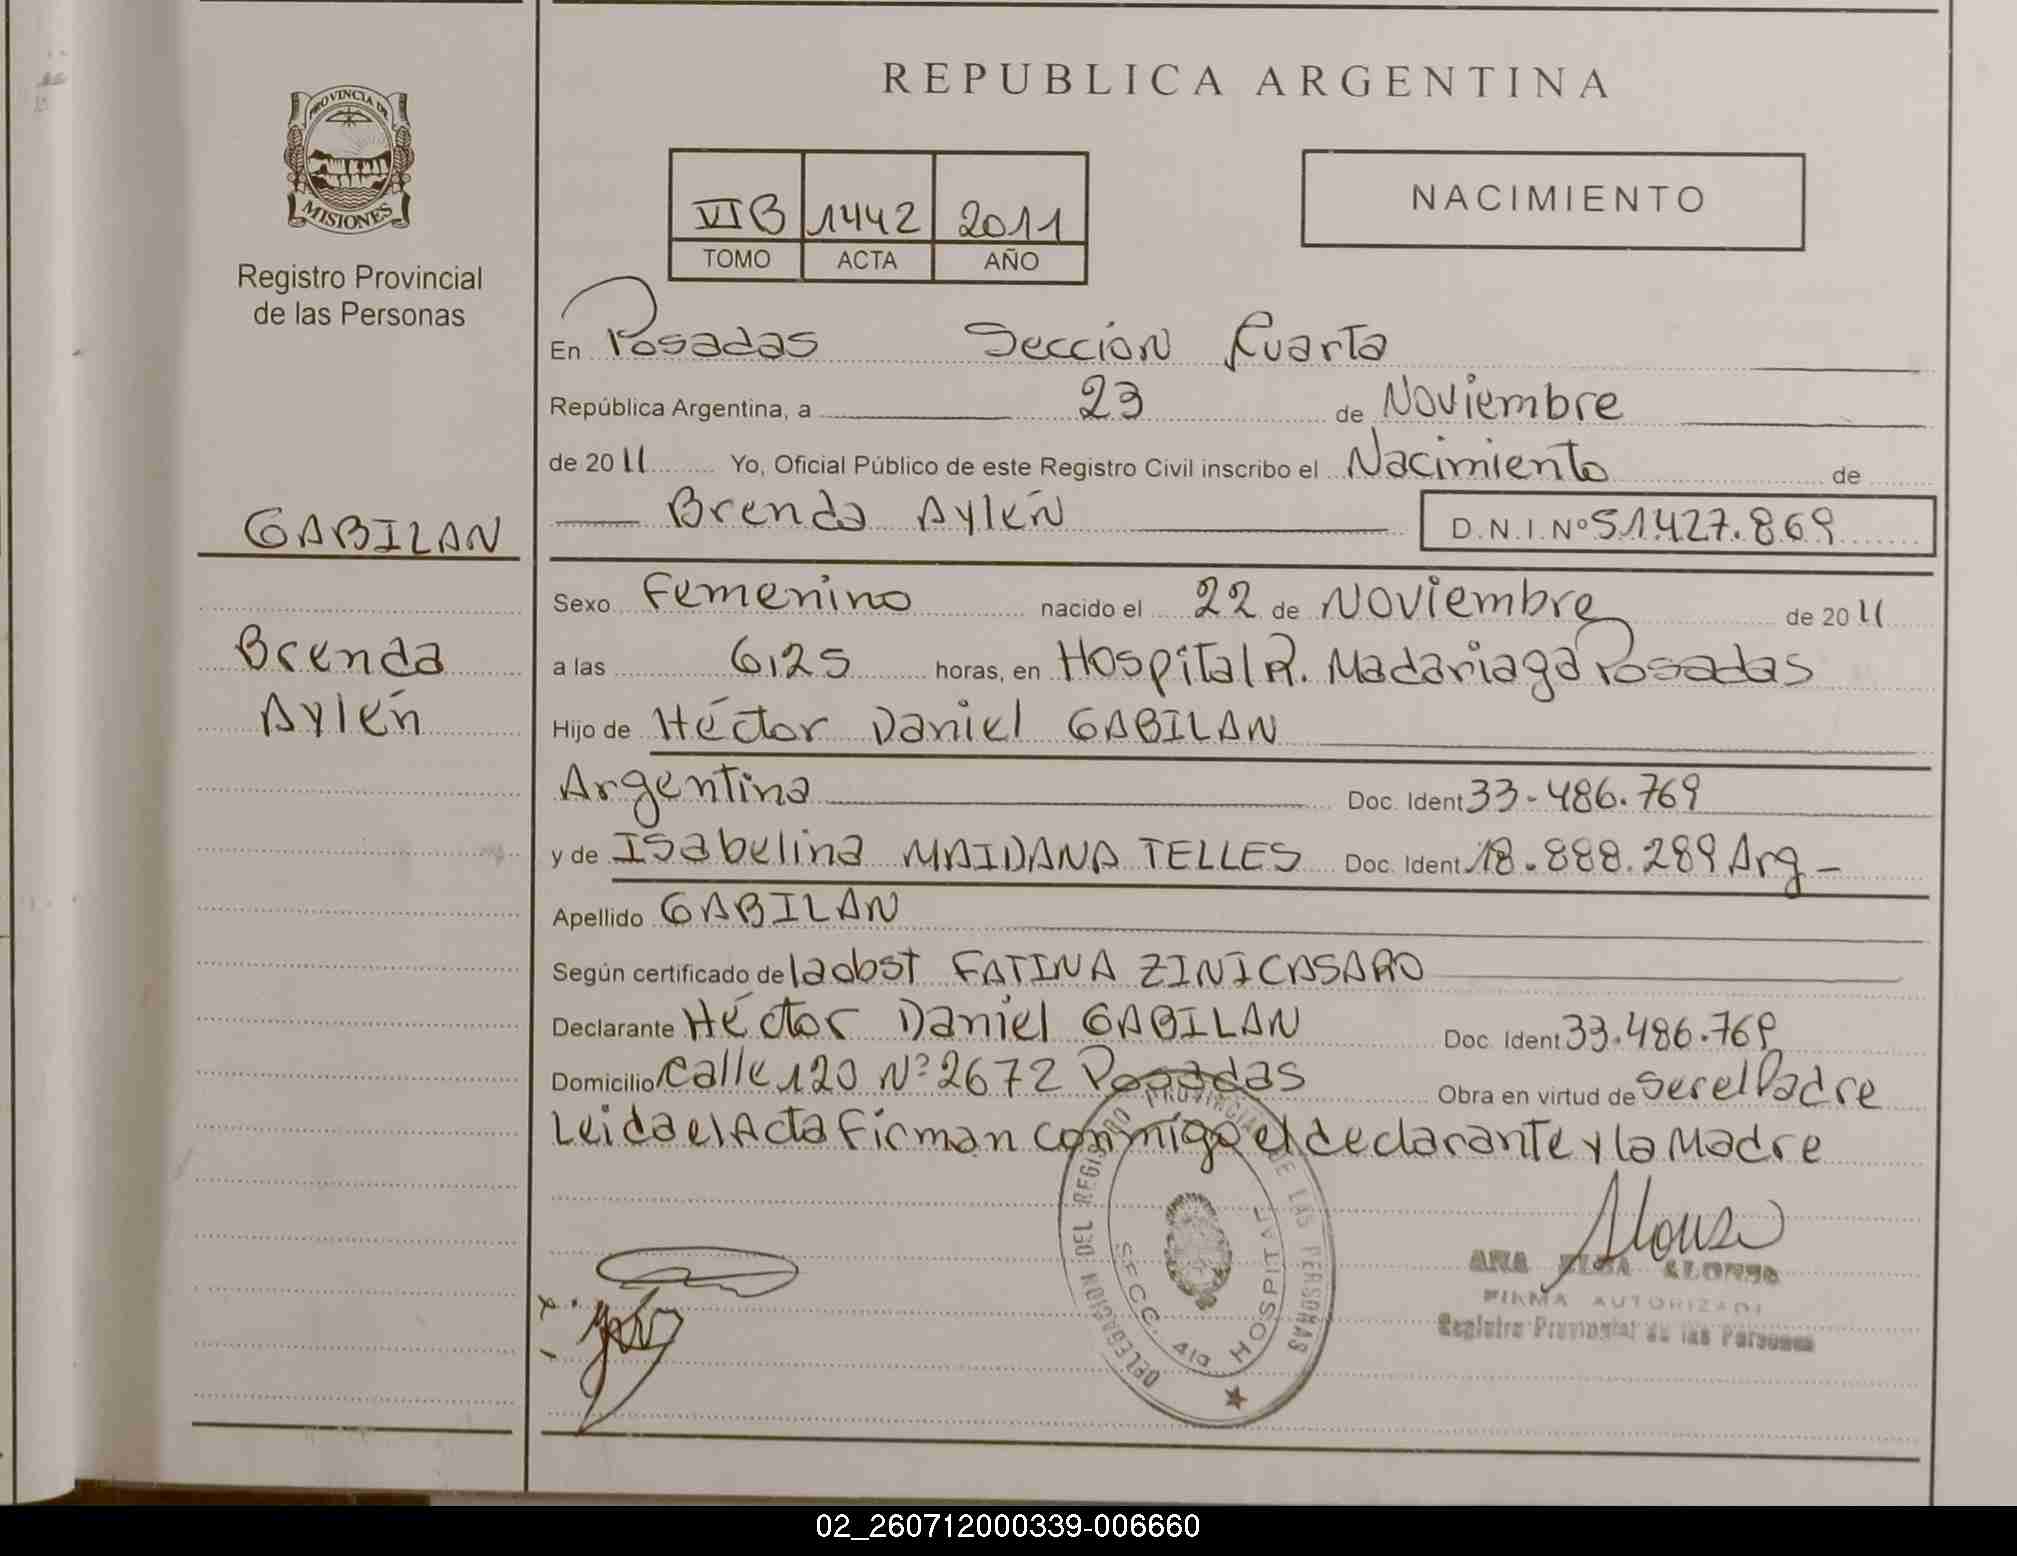 PROVINCIA DE
MISIONES
Registro Provincial
de las Personas
GABILAN
Brenda
Aylén
REPUBLICA ARGENTINA
VIB 1442 2011
TOMO ACTA AÑO
NACIMIENTO
En Posadas Sección Cuarta
República Argentina, a 23 de Noviembre
de 2011 Yo, Oficial Público de este Registro Civil inscribo el Nacimiento de
Brenda Aylén D.N.I. Nº 51.427.869
Sexo Femenino nacido el 22 de Noviembre de 2011
a las 6,25 horas, en Hospital R. Madariaga Posadas
Hijo de Héctor Daniel GABILAN
Argentina Doc. Ident 33-486.769
y de Isabelina MAIDANA TELLES Doc. Ident 18.888.289 Arg-
Apellido GABILAN
Según certificado de la obst FATINA ZINICASARO
Declarante Héctor Daniel GABILAN Doc. Ident 33.486.769
Domicilio Calle 120 Nº 2672 Posadas Obra en virtud de ser el Padre
Leida el Acta Firman conmigo el declarante y la Madre
DELEGACION DEL REGISTRO PROVINCIAL DE LAS PERSONAS
SECC. 4ta HOSPITAL
Alonso
ANA ELSA ALONSO
FIRMA AUTORIZADA
Registro Provincial de las Personas
02_260712000339-006660